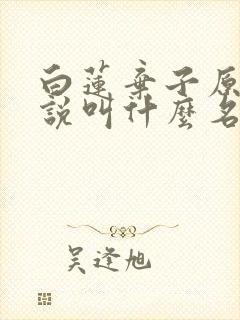 白蓮棄子原
說叫什麼名
吳逢旭